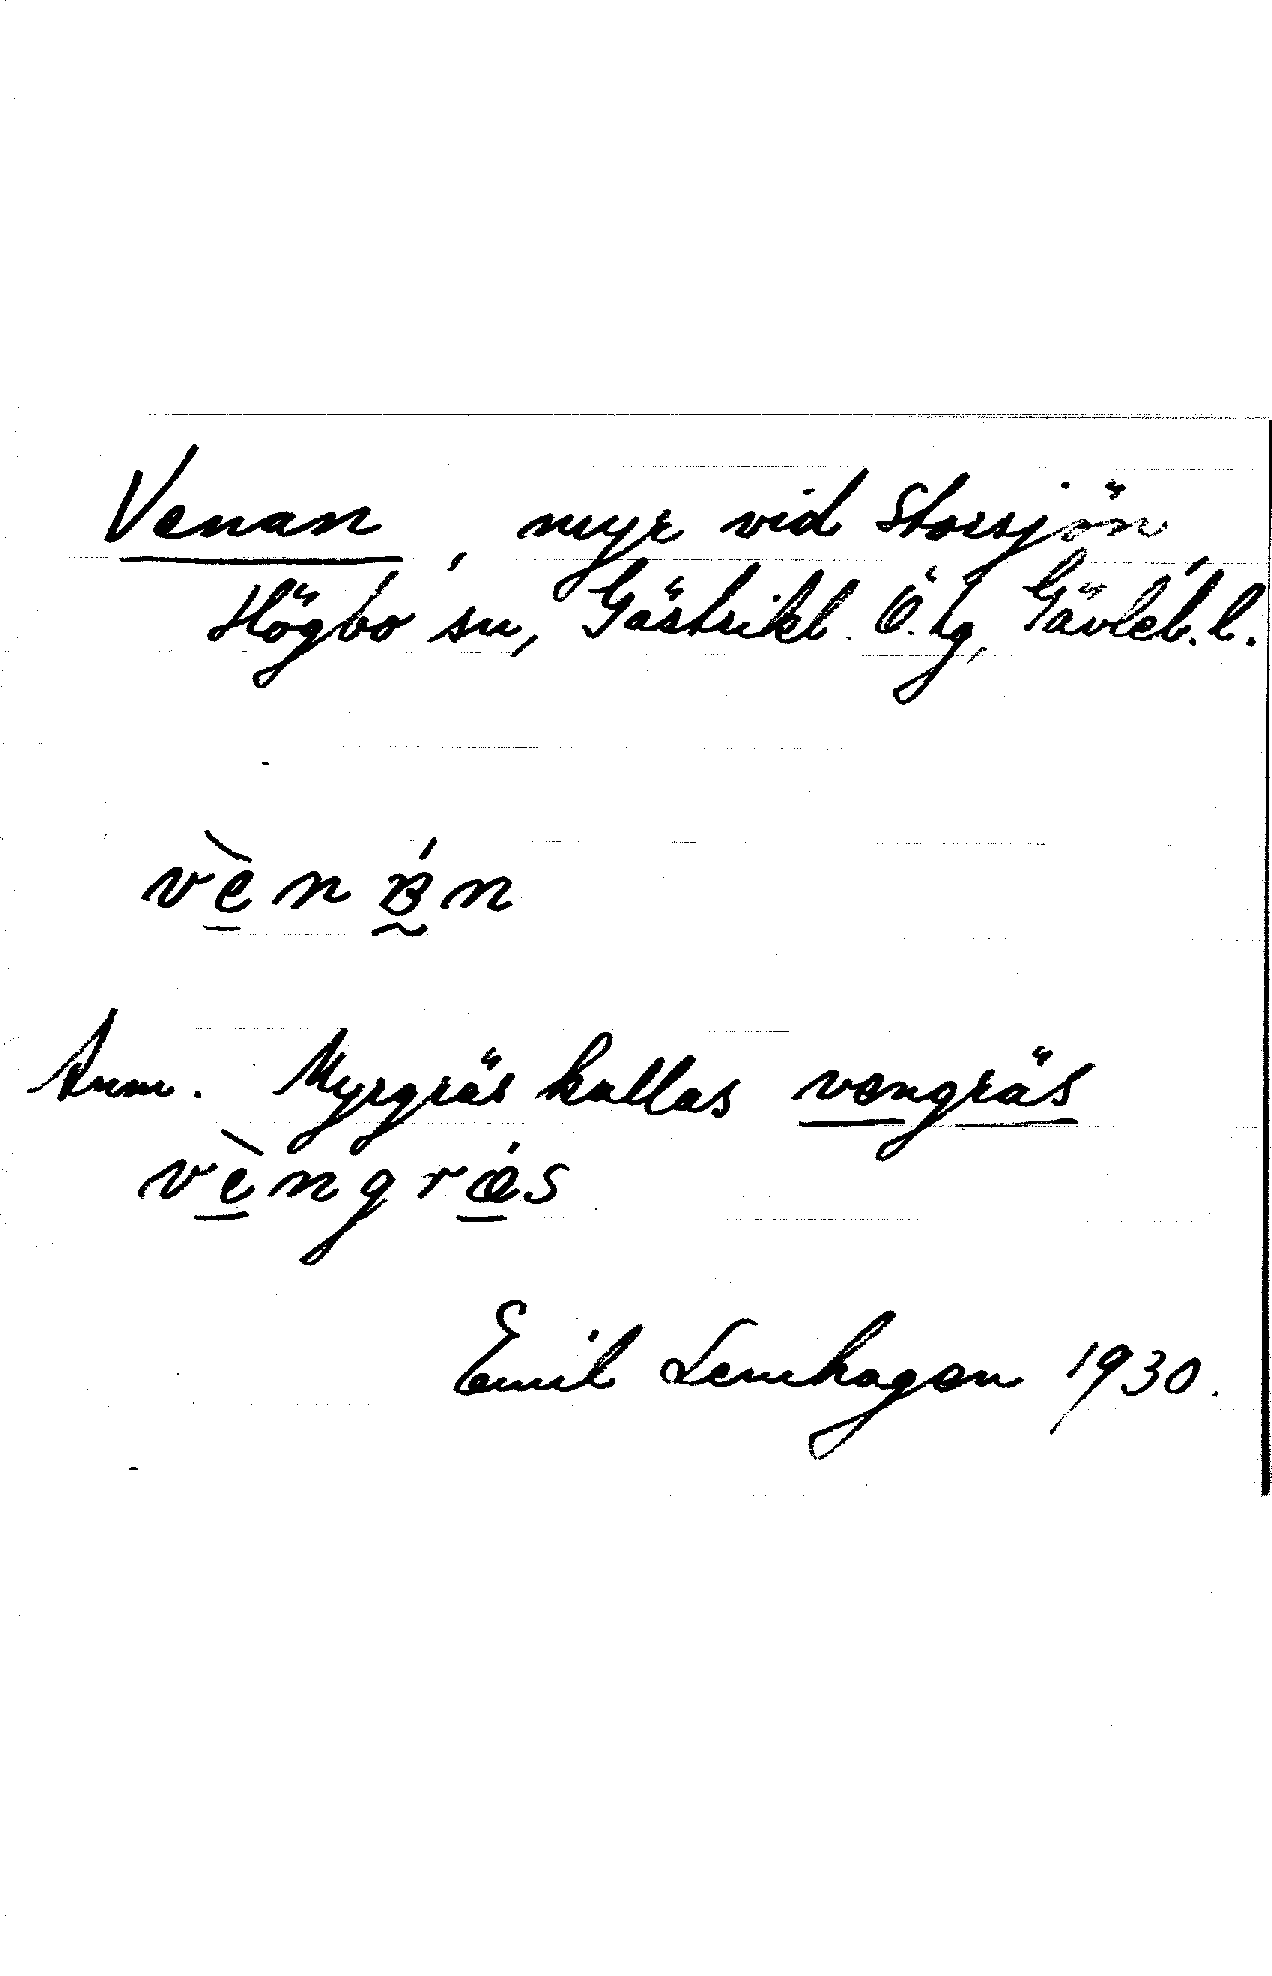 Venan, myr vid Storsjön,
Högbo sn, Gästrikl. Ö. tg, Gävleb. l.
vènán
Anm. Myrgräs kallas vengräs
vèngræ´s
Emil Lenhagen 1930.